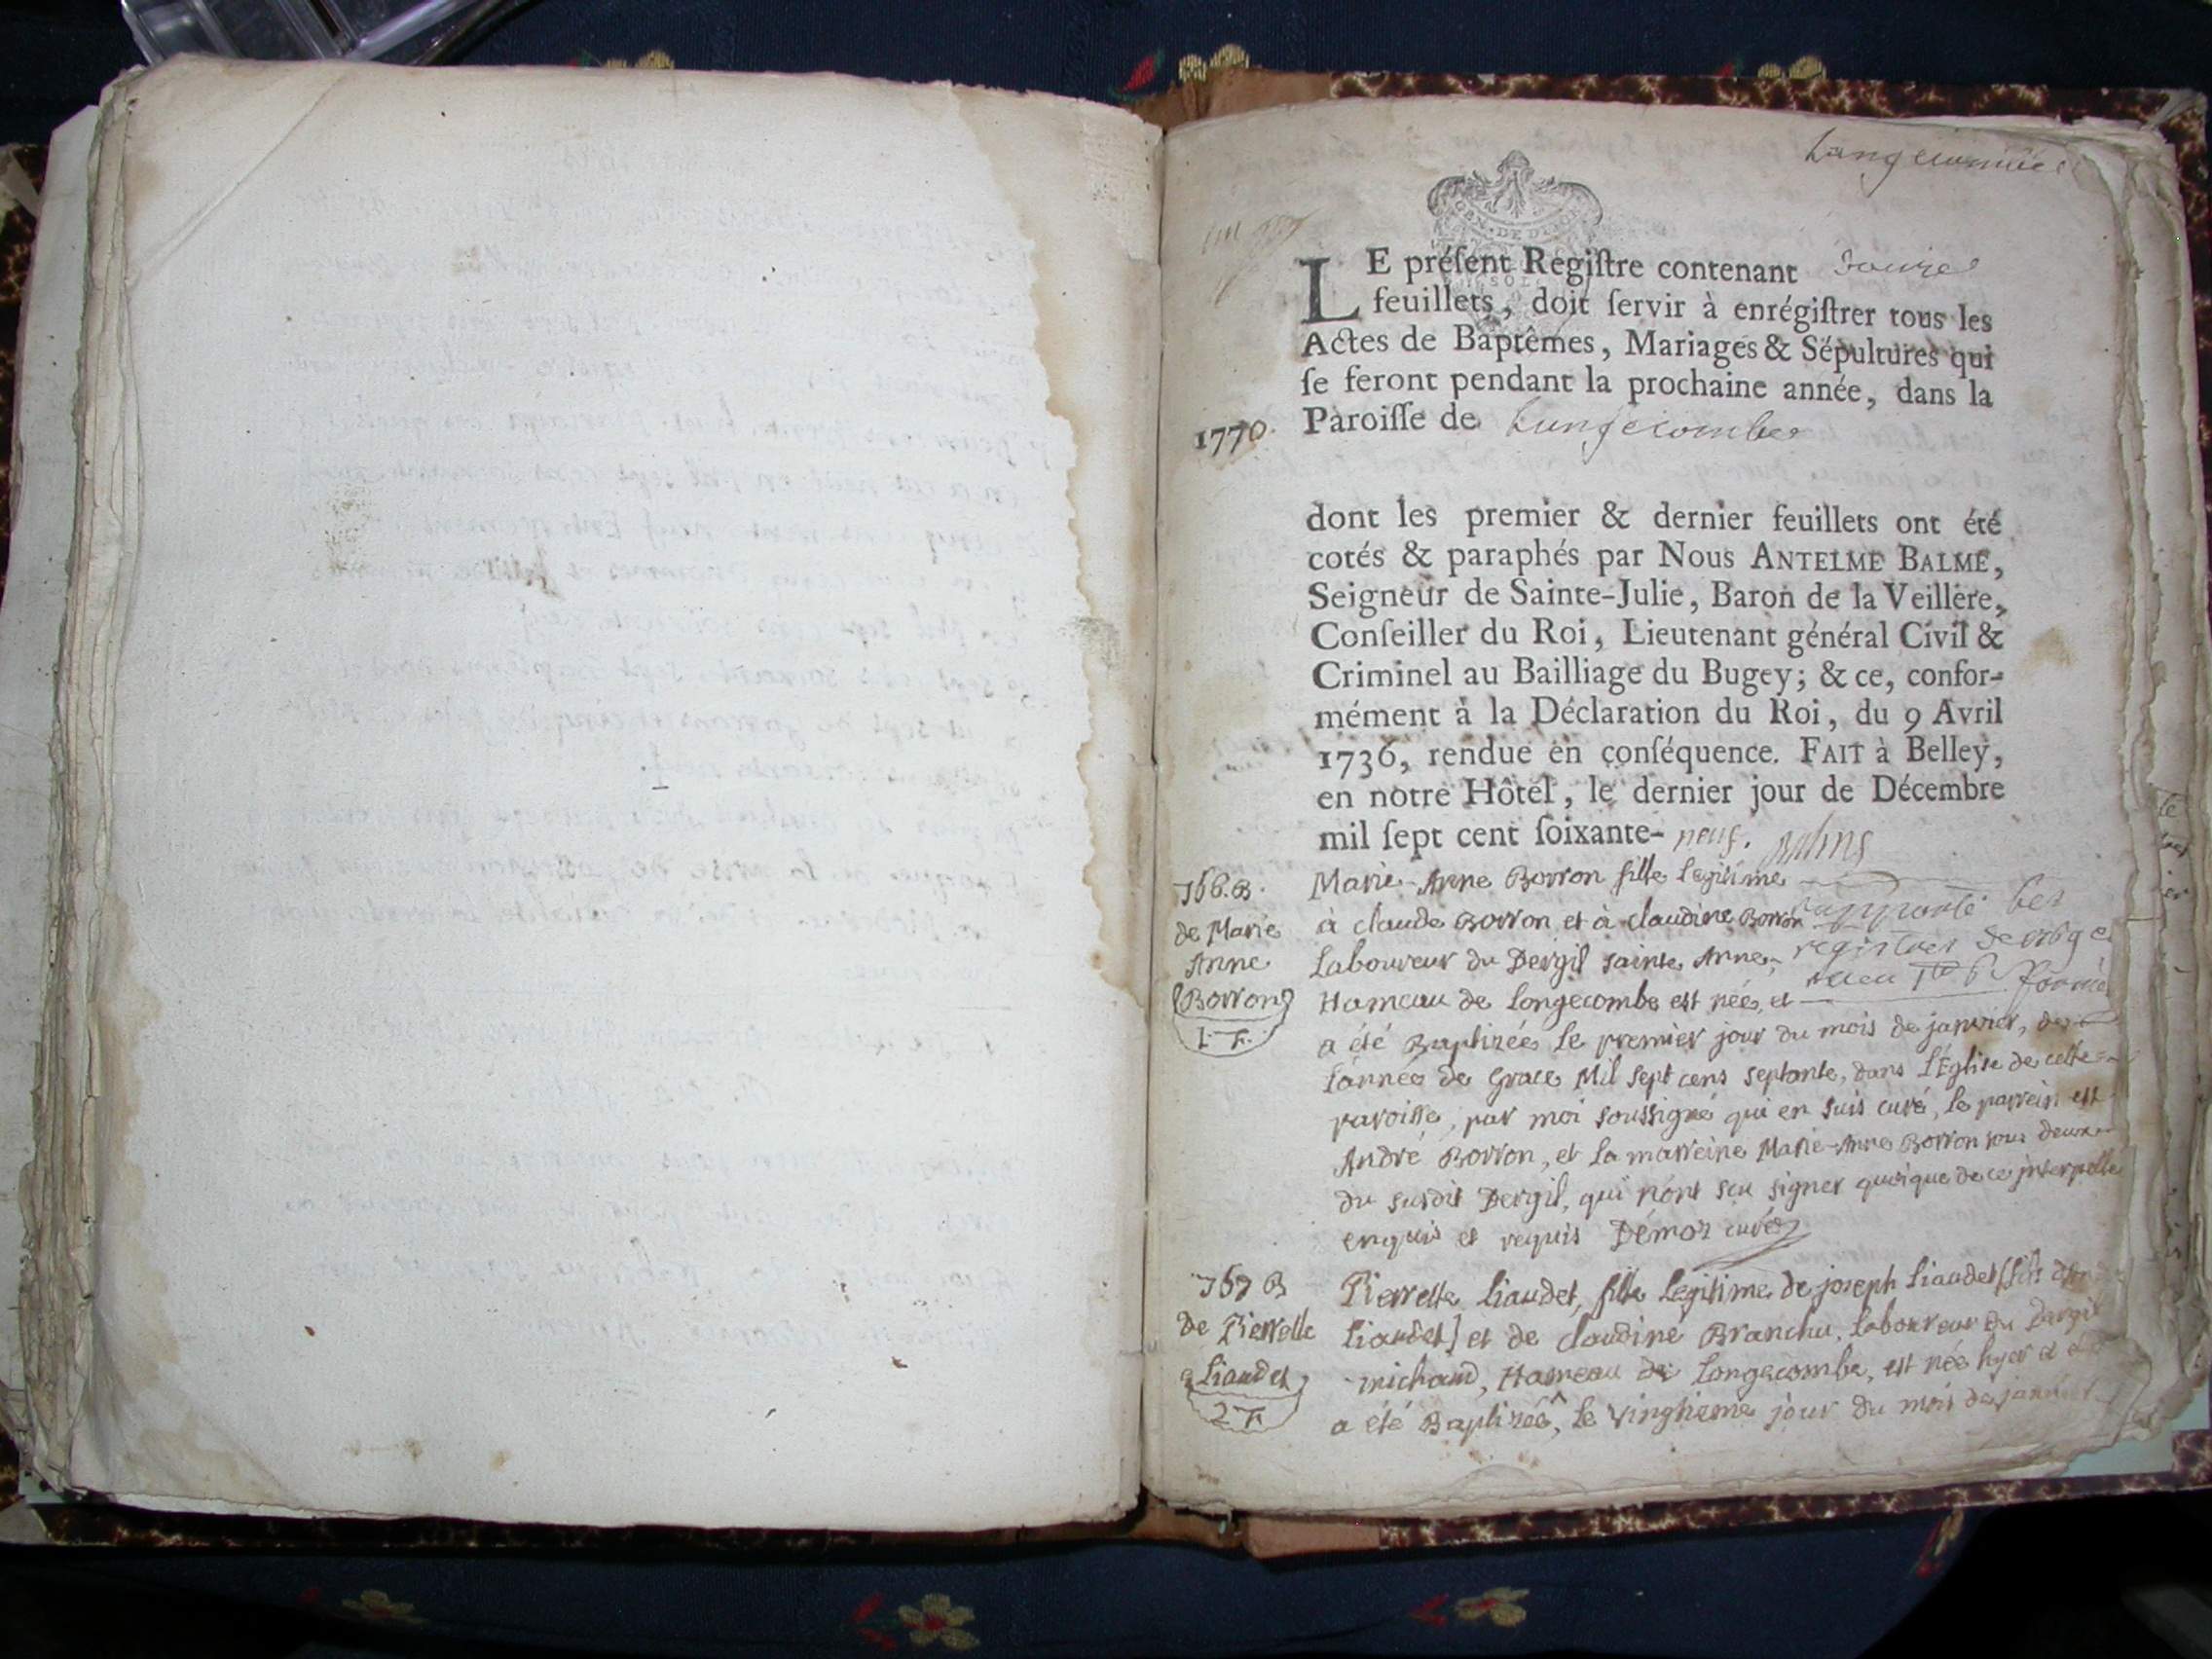 LE préſent Regiſtre contenant douze
feuillets, doit ſervir à enrégiſtrer tous les
Actes de Baptêmes, Mariages & Sépultures qui
ſe feront pendant la prochaine année, dans la
1770. Paroiſſe de Longecombe
dont les premier & dernier feuillets ont été
cotés & paraphés par Nous ANTELME BALME,
Seigneur de Sainte-Julie, Baron de la Veillere,
Conſeiller du Roi, Lieutenant général Civil &
Criminel au Bailliage du Bugey; & ce, confor-
mément à la Déclaration du Roi, du 9 Avril
1736, rendue en conſéquence. FAIT à Belley,
en notre Hôtel, le dernier jour de Décembre
mil ſept cent ſoixante-neuf.
de Marie
Anne
Borron
1 F.
Marie-Anne Borron fille legitime
à claude Borron et à claudine Borron
Laboureur du Dergil sainte Anne,
Hameau de longecombe est née, et
rapporté les
registres de 1769
a été Baptizée le premier jour du mois de janvier, de
l'année de Grace Mil sept cens septante, dans l'Eglise de cette
paroisse, par moi soussigné qui en suis curé, le parrein est
André Borron, et la marreine Marie-Anne Borron tous deux
du susdit Dergil, qui n'ont scu signer quoique de ce interpellé
enquis et requis Démoz curé
de Pierrette
Liaudet
2 F.
Pierrette Liaudet, fille Legitime de joseph Liaudet [fils
Liaudet] et de claudine Branchu, laboureur du Dergil
michaud, Hameau de Longecombe, est née hyer et
a été Baptizée, le vingtieme jour du mois de janvier